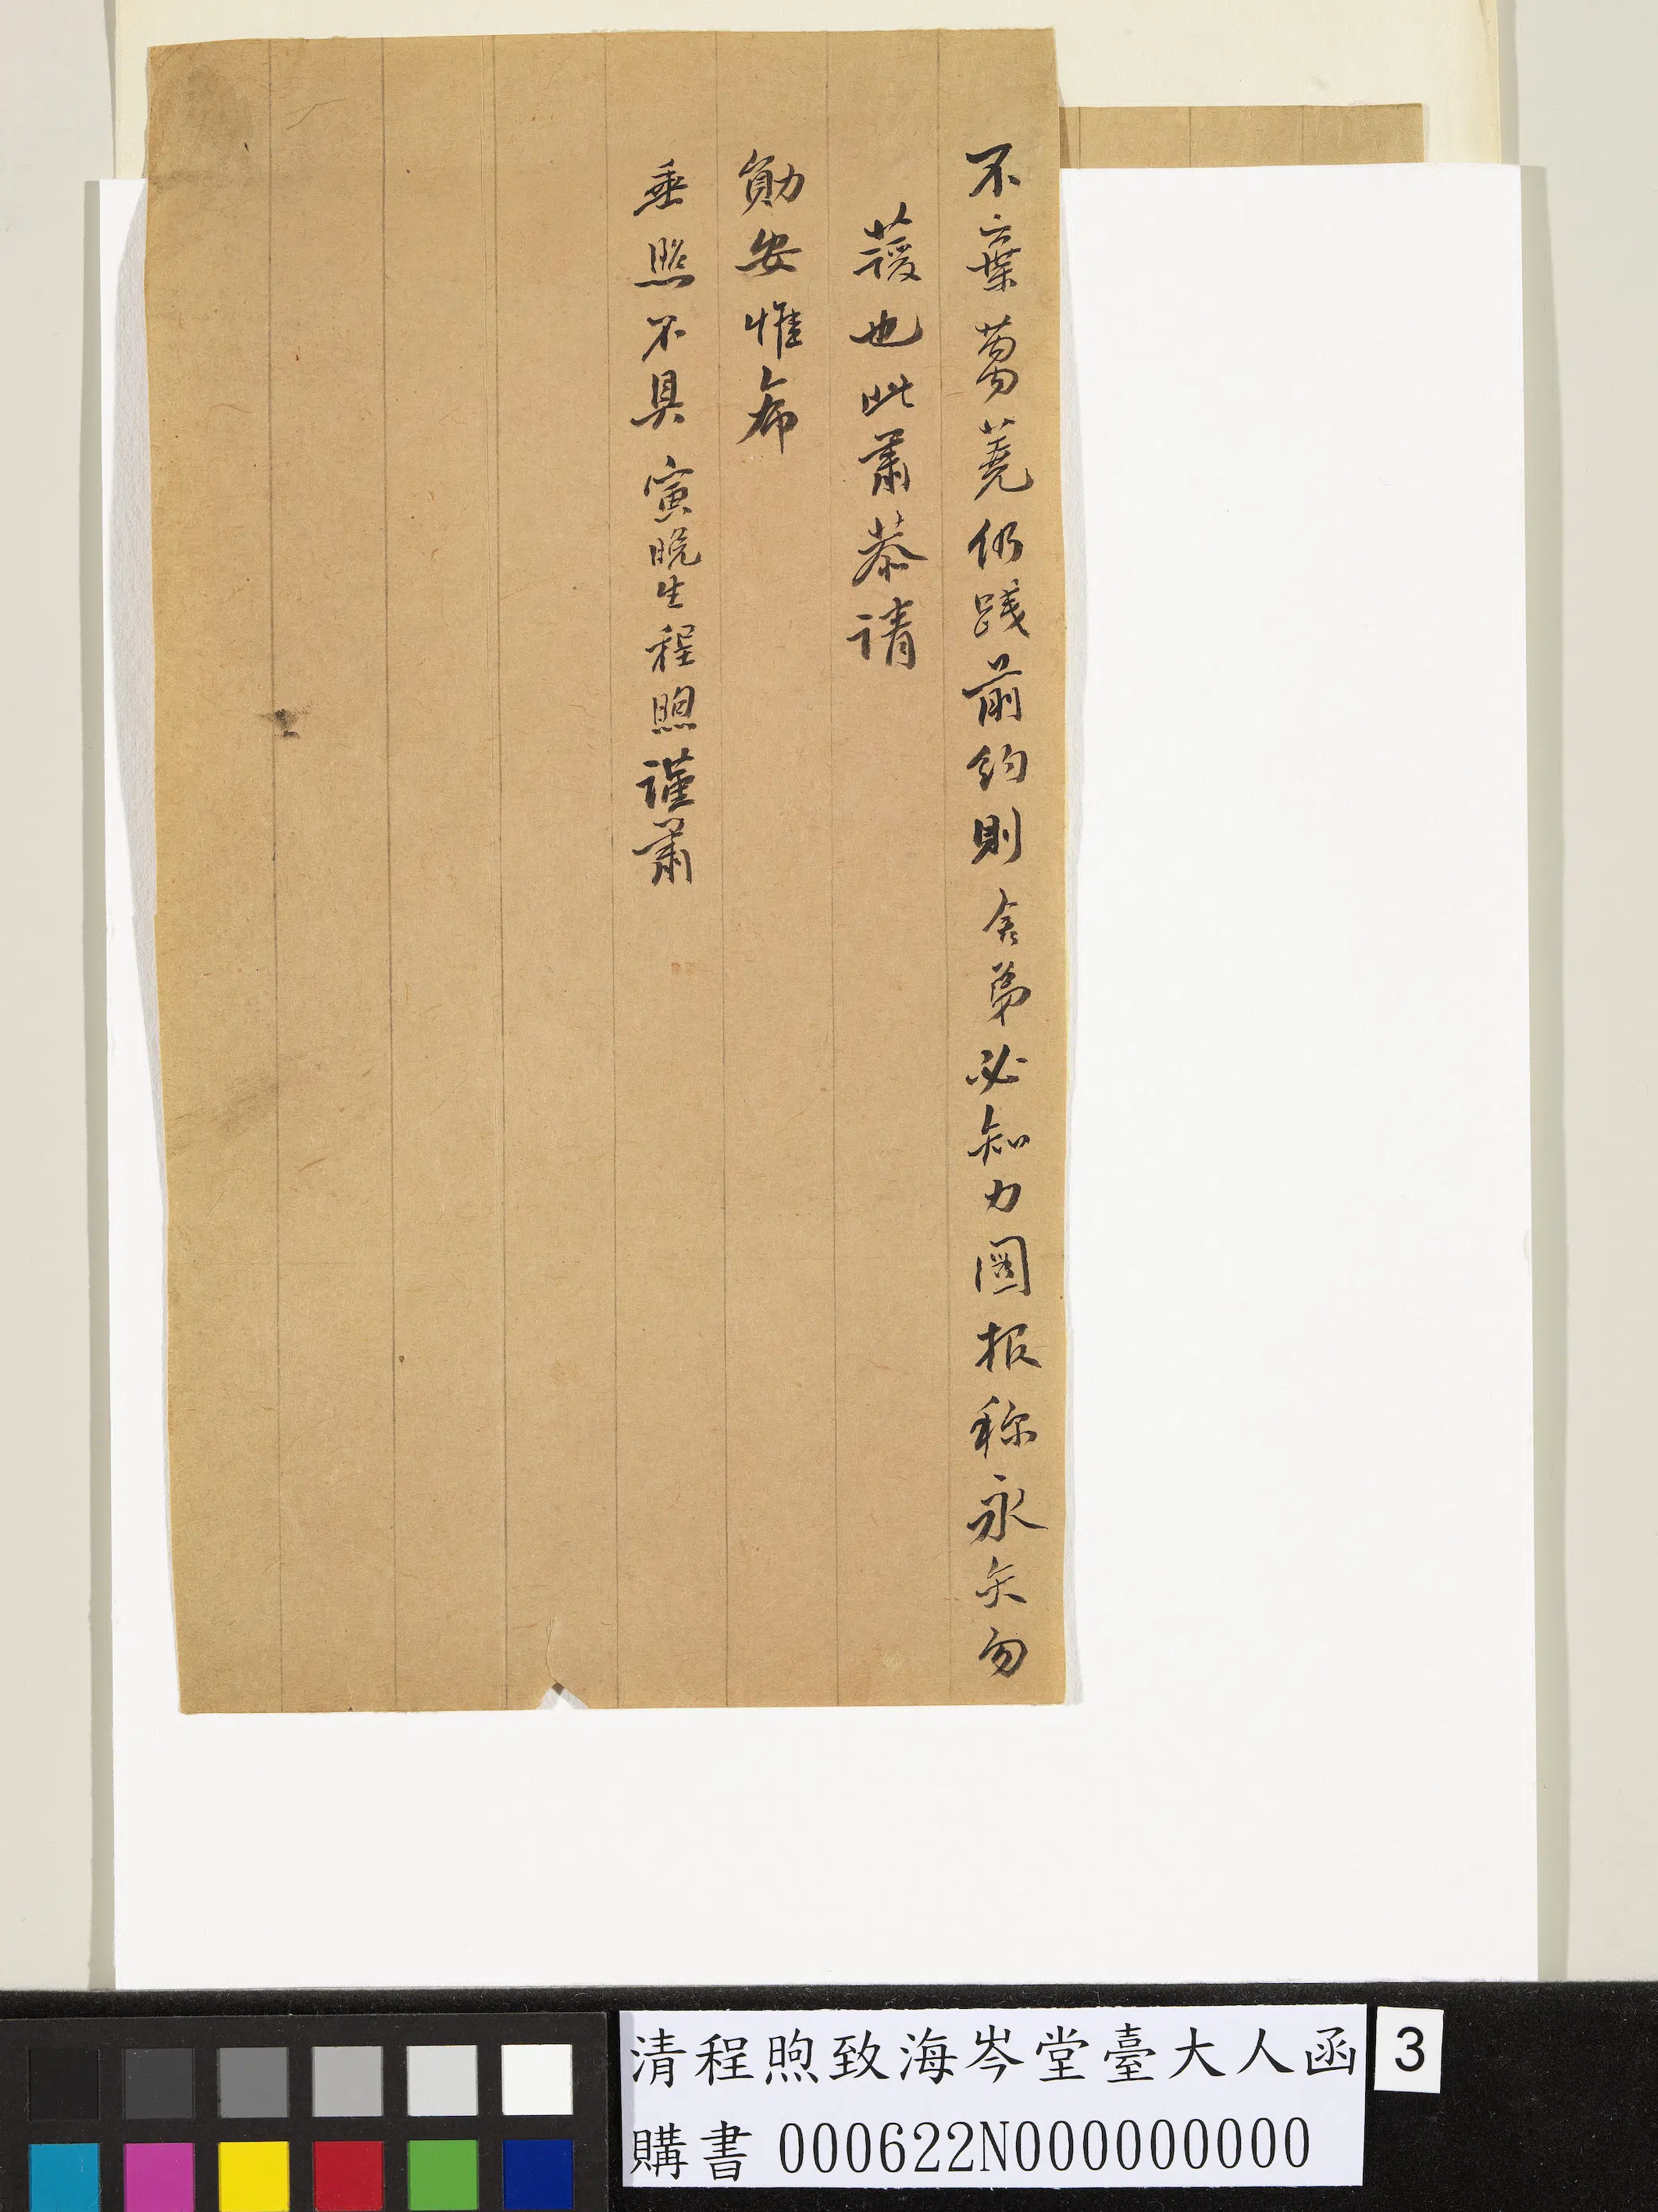 不棄葑菲仍踐前約則舍弟必知力圖報称永矢勿
諼也此肅恭請
勛安惟希
垂照不具 寅晚生程煦謹肅
清程煦致海岑堂臺大人函
購書 000622N000000000
3